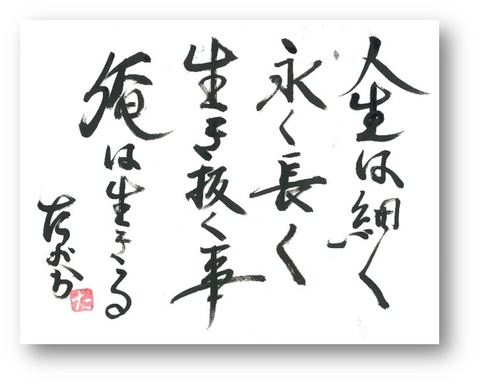 人生は細く
永く長く
生き抜く事
俺は生きる
たか
た